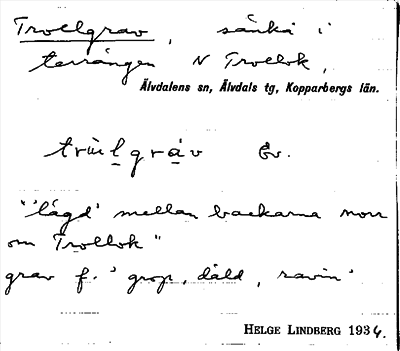 Trollgrav, sänka i
terrängen N Trollok,
Älvdalens sn, Älvdals tg, Kopparbergs län.
grav Ev.
"'lågd' mellan backarna norr
om Trollok"
grav f. 'grop, däld, ravin'
HELGE LINDBERG 1934.